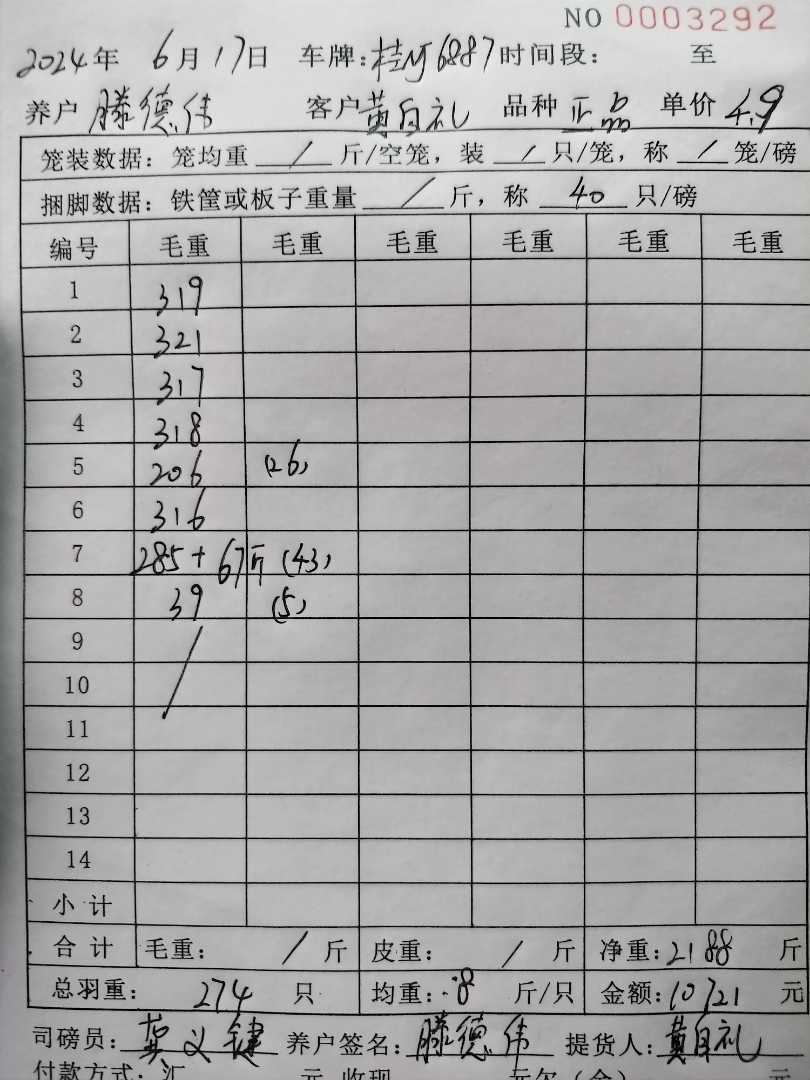 NO 0003292
2024年 6月17日 车牌:桂NJ6887 时间段: 至
养户 滕德伟 客户 黄自礼 品种 正品 单价 4.9
笼装数据: 笼均重 / 斤/空笼, 装 / 只/笼, 称 / 笼/磅
捆脚数据: 铁筐或板子重量 / 斤, 称 40 只/磅
编号 毛重 毛重 毛重 毛重 毛重 毛重
1 319
2 321
3 317
4 318
5 206 (26)
6 316
7 285+67斤 (43)
8 39 (5)
9 /
10
11
12
13
14
小计
合计 毛重: / 斤 皮重: / 斤 净重: 2188 斤
总羽重: 274 只 均重: .8 斤/只 金额: 10721 元
司磅员: 龚义键 养户签名: 滕德伟 提货人: 黄自礼
付款方式: 汇 元 收现 元 欠(余) 元